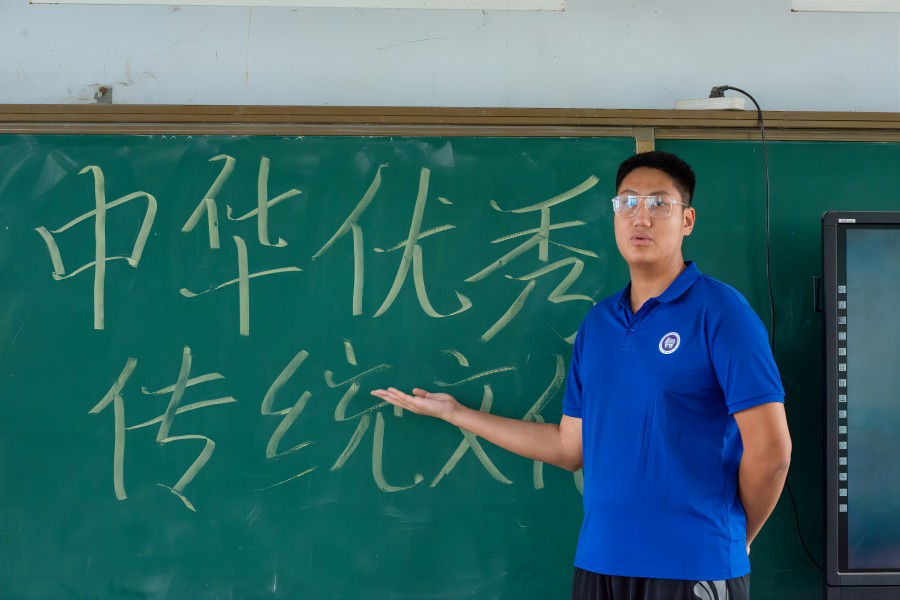 中华优秀
传统文